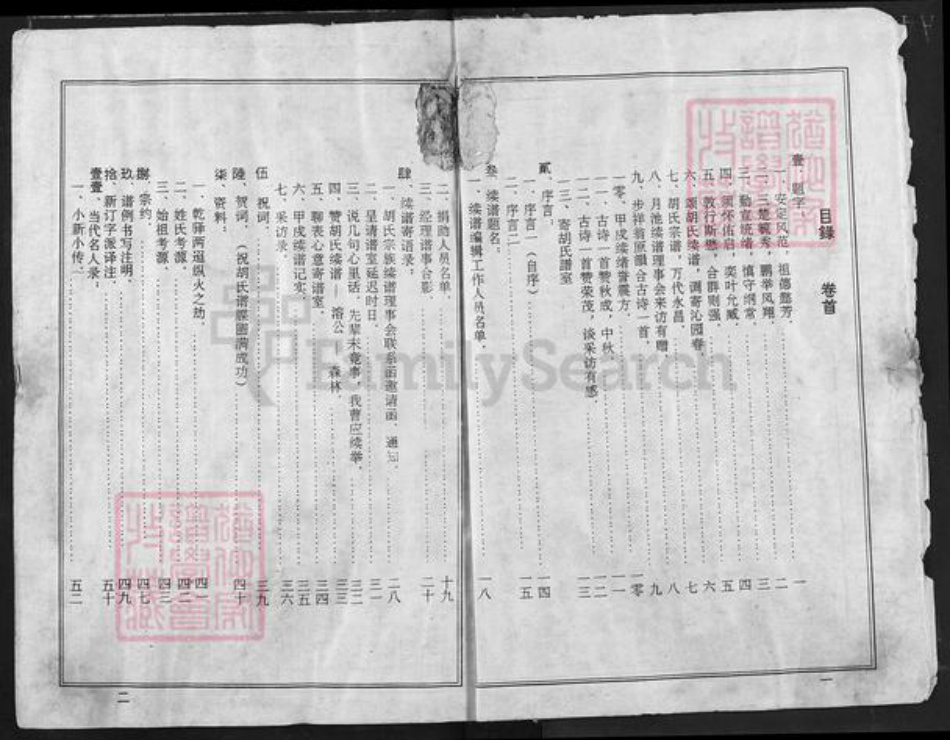 目録 卷首
壹、题字
一、安定风范，祖德懿芳、 一
二、三楚毓秀，鹏举凤翔 二
三、勤宣统绪，慎守纲常、 三
四、 怀佑启，奕叶允臧、 四
五、敦行斯懋，合群则强、 五
六、颂胡氏续谱，调寄沁园春、 六
七、胡氏宗谱，万代永昌、 七
八、月池续谱理事会来访有赠、 八
九、步祥翁原韻合古诗一首、 九
一零、甲戍续绪誉震方、 一零
一一、古诗一首赞秋成，中秋、 一一
一二、古诗一首赞荣茂，谈采访有感、 一二
一三、寄胡氏譜室 一三
贰、序言：
一、序言一（自序） 一四
二、序言二 一五
叁、续谱题名：
一、续谱编辑工作人员名单、 一八
二、捐助人员名单、 十九
三、经理谱事合影 二十
肆、续谱寄语录：
一、胡氏宗族续谱理事会联系函邀请函、通知、 二八
二、呈请谱室延迟时日、 三一
三、说几句心里话，先辈未竟事，我曹应续举、 三二
四、赞胡氏续谱— 溶公— 森林、 三三
五、聊表心意寄谱室、 三四
六、甲戍续谱记实、 三五
七、采访录、 三六
伍、祝词、 三九
陸、贺词、（祝胡氏谱牒圆满成功） 四十
柒、资料：
一、乾驿两遍纵火之劫、 四一
二、姓氏考源、 四二
三、始祖考源、 四三
捌、宗约、 四七
玖、谱例书写注明、 四九
拾、新订字派译注、 五十
壹壹、当代名人录：
一、小新小传、 五二
一
二
FamilySearch